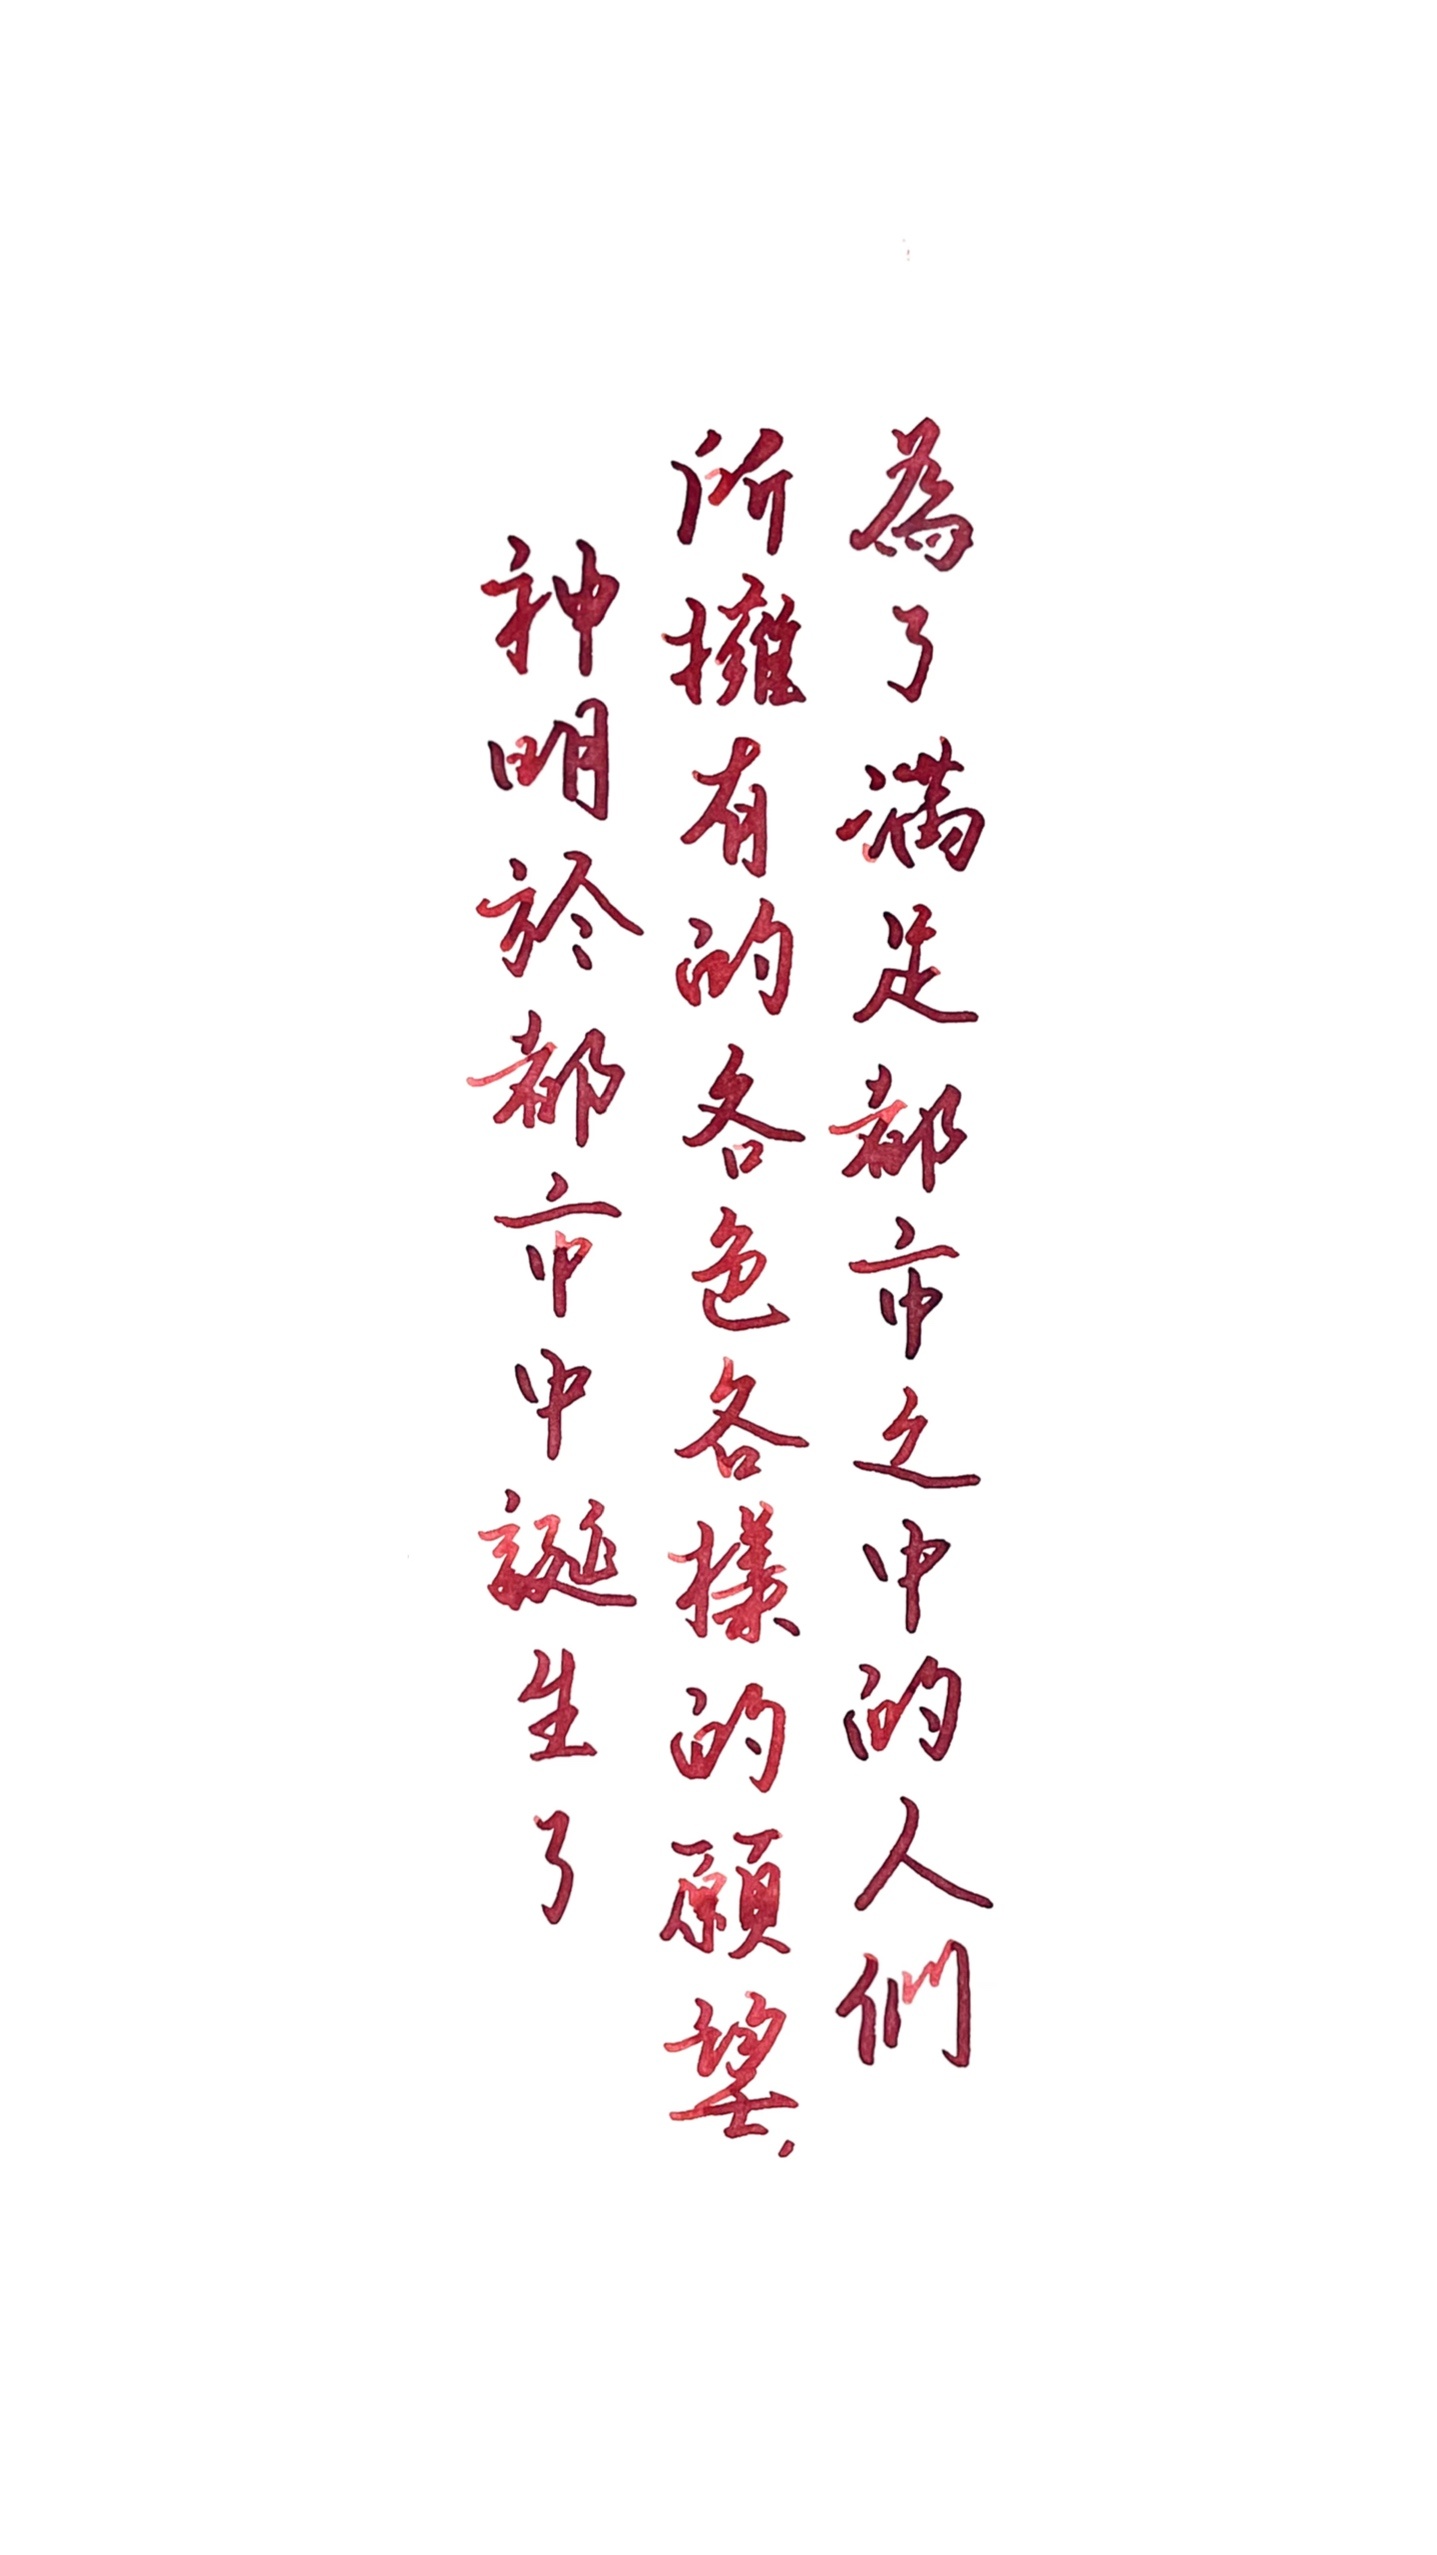 為了滿足都市之中的人們
所擁有的各色各樣的願望，
神明於都市中誕生了